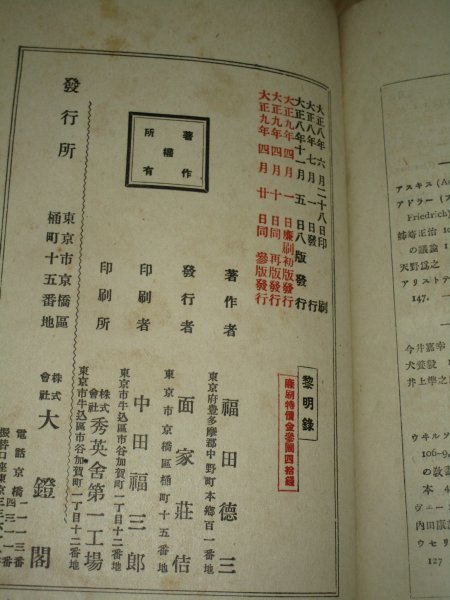 大正八年六月二十八日印刷
大正八年七月一日發行
大正八年十一月五日八版發行
大正九年四月一日廉刷初版發行
大正九年四月十日同再版發行
大正九年四月廿日同參版發行
黎明錄
廉刷特價金參圓四拾錢
著作權所有
著作者 福田德三
東京府豊多摩郡中野町本郷百一番地
發行者 面家荘佶
東京市京橋區桶町十五番地
印刷者 中田福三郎
東京市牛込區市谷加賀町一丁目十二番地
印刷所 株式會社秀英舍第一工場
東京市牛込區市谷加賀町一丁目十二番地
發行所
東京市京橋區桶町十五番地
株式會社 大鐙閣
電話京橋
振替口座東京
アスキス
アドラー
Friedrich)
姉崎正治
の議論
天野爲之
アリストテ
147.
今井嘉幸
犬養毅
井上準之
ウキルソ
106-9,
の敎書
本
ヴェー
内田
ウセリ
127